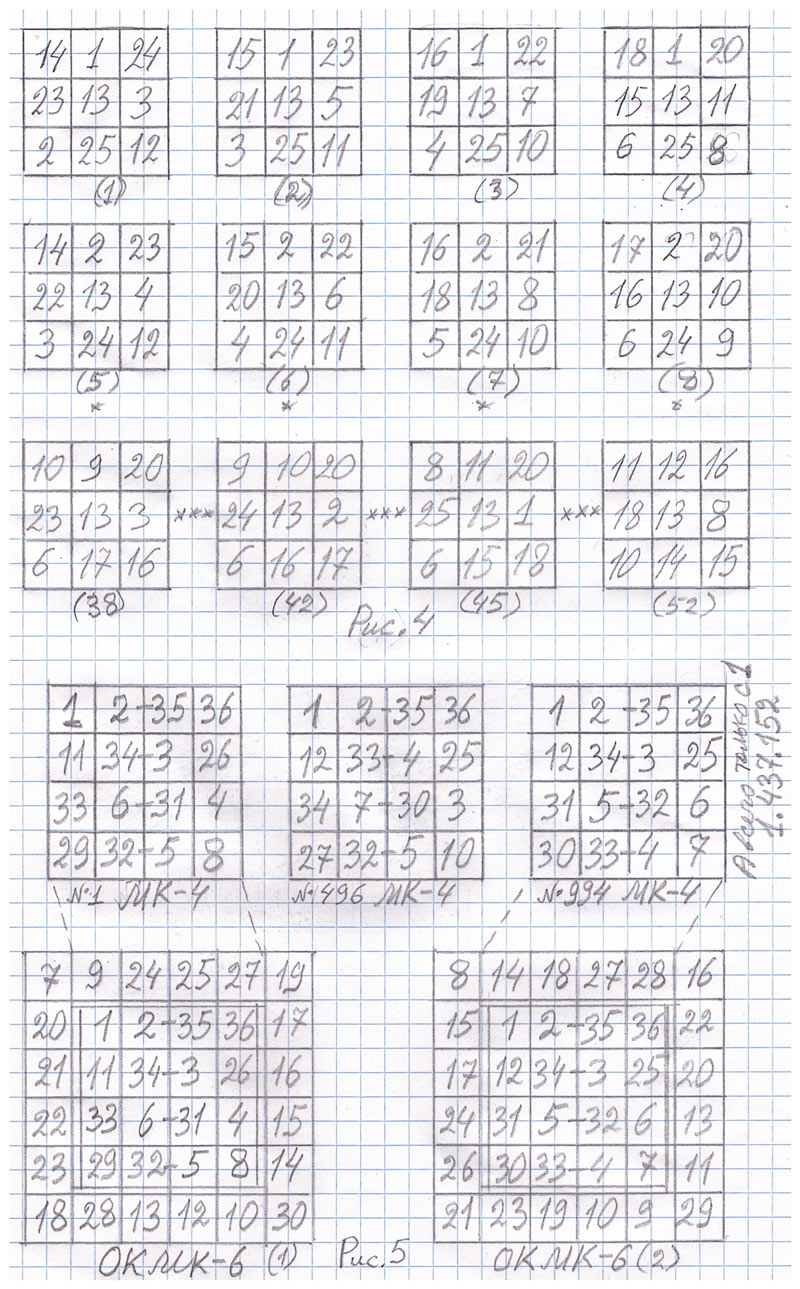 14 1 24 15 1 23 16 1 22 18 1 20
23 13 3 21 13 5 19 13 7 15 13 11
2 25 12 3 25 11 4 25 10 6 25 8
(1) (2) (3) (4)
14 2 23 15 2 22 16 2 21 17 2 20
22 13 4 20 13 6 18 13 8 16 13 10
3 24 12 4 24 11 5 24 10 6 24 9
(5) (6) (7) (8)
* * * *
10 9 20 9 10 20 8 11 20 11 12 16
23 13 3 *** 24 13 2 *** 25 13 1 *** 18 13 8
6 17 16 6 16 17 6 15 18 10 14 15
(38) (42) (45) (52)
Рис. 4
1 2-35 36 1 2-35 36 1 2-35 36
11 34-3 26 12 33-4 25 12 34-3 25
33 6-31 4 34 7-30 3 31 5-32 6
29 32-5 8 27 32-5 10 30 33-4 7
№1 МК-4 №496 МК-4 №994 МК-4
А всего только с 1
1.437.152
7 9 24 25 27 19 8 14 18 27 28 16
20 1 2-35 36 17 15 1 2-35 36 22
21 11 34-3 26 16 17 12 34-3 25 20
22 33 6-31 4 15 24 31 5-32 6 13
23 29 32-5 8 14 26 30 33-4 7 11
18 28 13 12 10 30 21 23 19 10 9 29
ОКМК-6 (1) Рис. 5 ОКМК-6 (2)